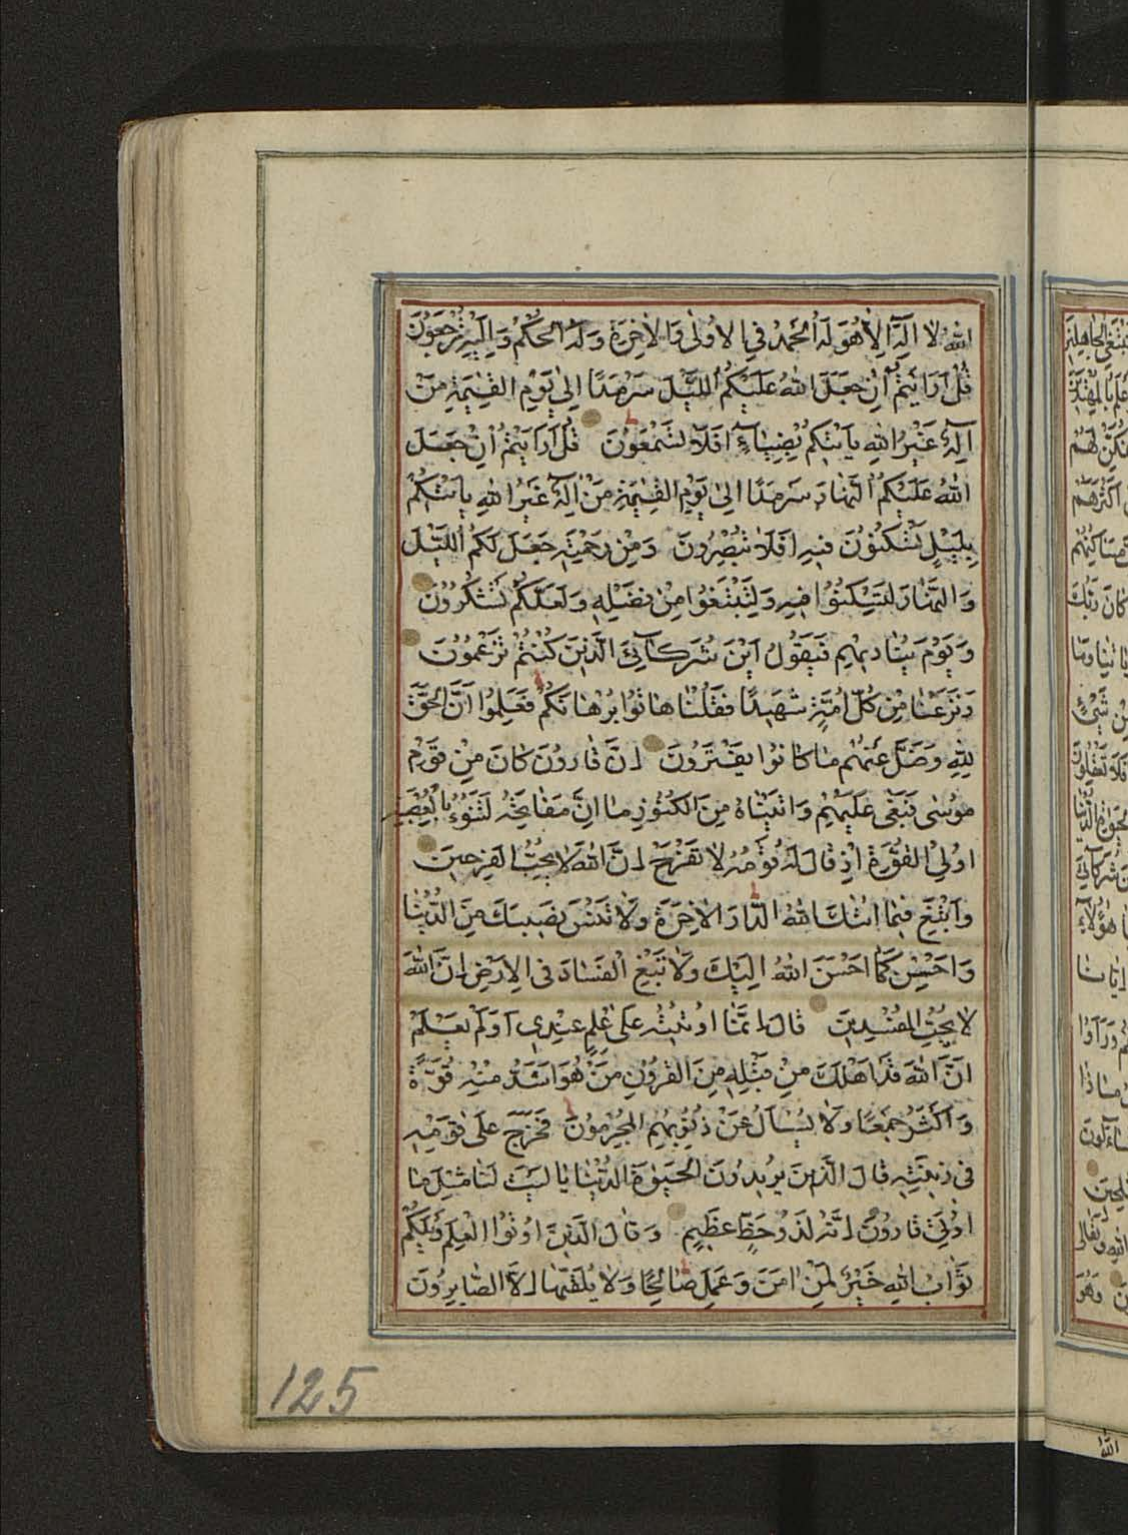 الله لا اِلٰهَ اِلَّا هُوَ لَهُ الْحَمْدُ فِي الْاُولٰى وَالْاٰخِرَةِ وَلَهُ الْحُكْمُ وَاِلَيْهِ تُرْجَعُونَ
قُلْ اَرَاَيْتُمْ اِنْ جَعَلَ اللهُ عَلَيْكُمُ اللَّيْلَ سَرْمَدًا اِلٰى يَوْمِ الْقِيٰمَةِ مَنْ
اِلٰهٌ غَيْرُ اللهِ يَأْتِيكُمْ بِضِيَاءٍ اَفَلَا تَسْمَعُونَ قُلْ اَرَاَيْتُمْ اِنْ جَعَلَ
اللهُ عَلَيْكُمُ النَّهَارَ سَرْمَدًا اِلٰى يَوْمِ الْقِيٰمَةِ مَنْ اِلٰهٌ غَيْرُ اللهِ يَأْتِيكُمْ
بِلَيْلٍ تَسْكُنُونَ فِيهِ اَفَلَا تُبْصِرُونَ وَمِنْ رَحْمَتِهِ جَعَلَ لَكُمُ اللَّيْلَ
وَالنَّهَارَ لِتَسْكُنُوا فِيهِ وَلِتَبْتَغُوا مِنْ فَضْلِهِ وَلَعَلَّكُمْ تَشْكُرُونَ
وَيَوْمَ يُنَادِيهِمْ فَيَقُولُ اَيْنَ شُرَكَآئِيَ الَّذِينَ كُنْتُمْ تَزْعُمُونَ
وَنَزَعْنَا مِنْ كُلِّ اُمَّةٍ شَهِيدًا فَقُلْنَا هَاتُوا بُرْهَانَكُمْ فَعَلِمُوا اَنَّ الْحَقَّ
لِلّٰهِ وَضَلَّ عَنْهُمْ مَا كَانُوا يَفْتَرُونَ اِنَّ قَارُونَ كَانَ مِنْ قَوْمِ
مُوسٰى فَبَغٰى عَلَيْهِمْ وَاٰتَيْنَاهُ مِنَ الْكُنُوزِ مَا اِنَّ مَفَاتِحَهُ لَتَنُوءُ بِالْعُصْبَةِ
اُولِي الْقُوَّةِ اِذْ قَالَ لَهُ قَوْمُهُ لَا تَفْرَحْ اِنَّ اللهَ لَا يُحِبُّ الْفَرِحِينَ
وَابْتَغِ فِيمَا اٰتٰيكَ اللهُ الدَّارَ الْاٰخِرَةَ وَلَا تَنْسَ نَصِيبَكَ مِنَ الدُّنْيَا
وَاَحْسِنْ كَمَا اَحْسَنَ اللهُ اِلَيْكَ وَلَا تَبْغِ الْفَسَادَ فِي الْاَرْضِ اِنَّ اللهَ
لَا يُحِبُّ الْمُفْسِدِينَ قَالَ اِنَّمَا اُوتِيتُهُ عَلٰى عِلْمٍ عِنْدِي اَوَلَمْ يَعْلَمْ
اَنَّ اللهَ قَدْ اَهْلَكَ مِنْ قَبْلِهِ مِنَ الْقُرُونِ مَنْ هُوَ اَشَدُّ مِنْهُ قُوَّةً
وَاَكْثَرُ جَمْعًا وَلَا يُسْاَلُ عَنْ ذُنُوبِهِمُ الْمُجْرِمُونَ فَخَرَجَ عَلٰى قَوْمِهِ
فِي زِينَتِهِ قَالَ الَّذِينَ يُرِيدُونَ الْحَيٰوةَ الدُّنْيَا يَا لَيْتَ لَنَا مِثْلَ مَا
اُوتِيَ قَارُونُ اِنَّهُ لَذُو حَظٍّ عَظِيمٍ وَقَالَ الَّذِينَ اُوتُوا الْعِلْمَ وَيْلَكُمْ
ثَوَابُ اللهِ خَيْرٌ لِمَنْ اٰمَنَ وَعَمِلَ صَالِحًا وَلَا يُلَقّٰيهَا اِلَّا الصَّابِرُونَ
125